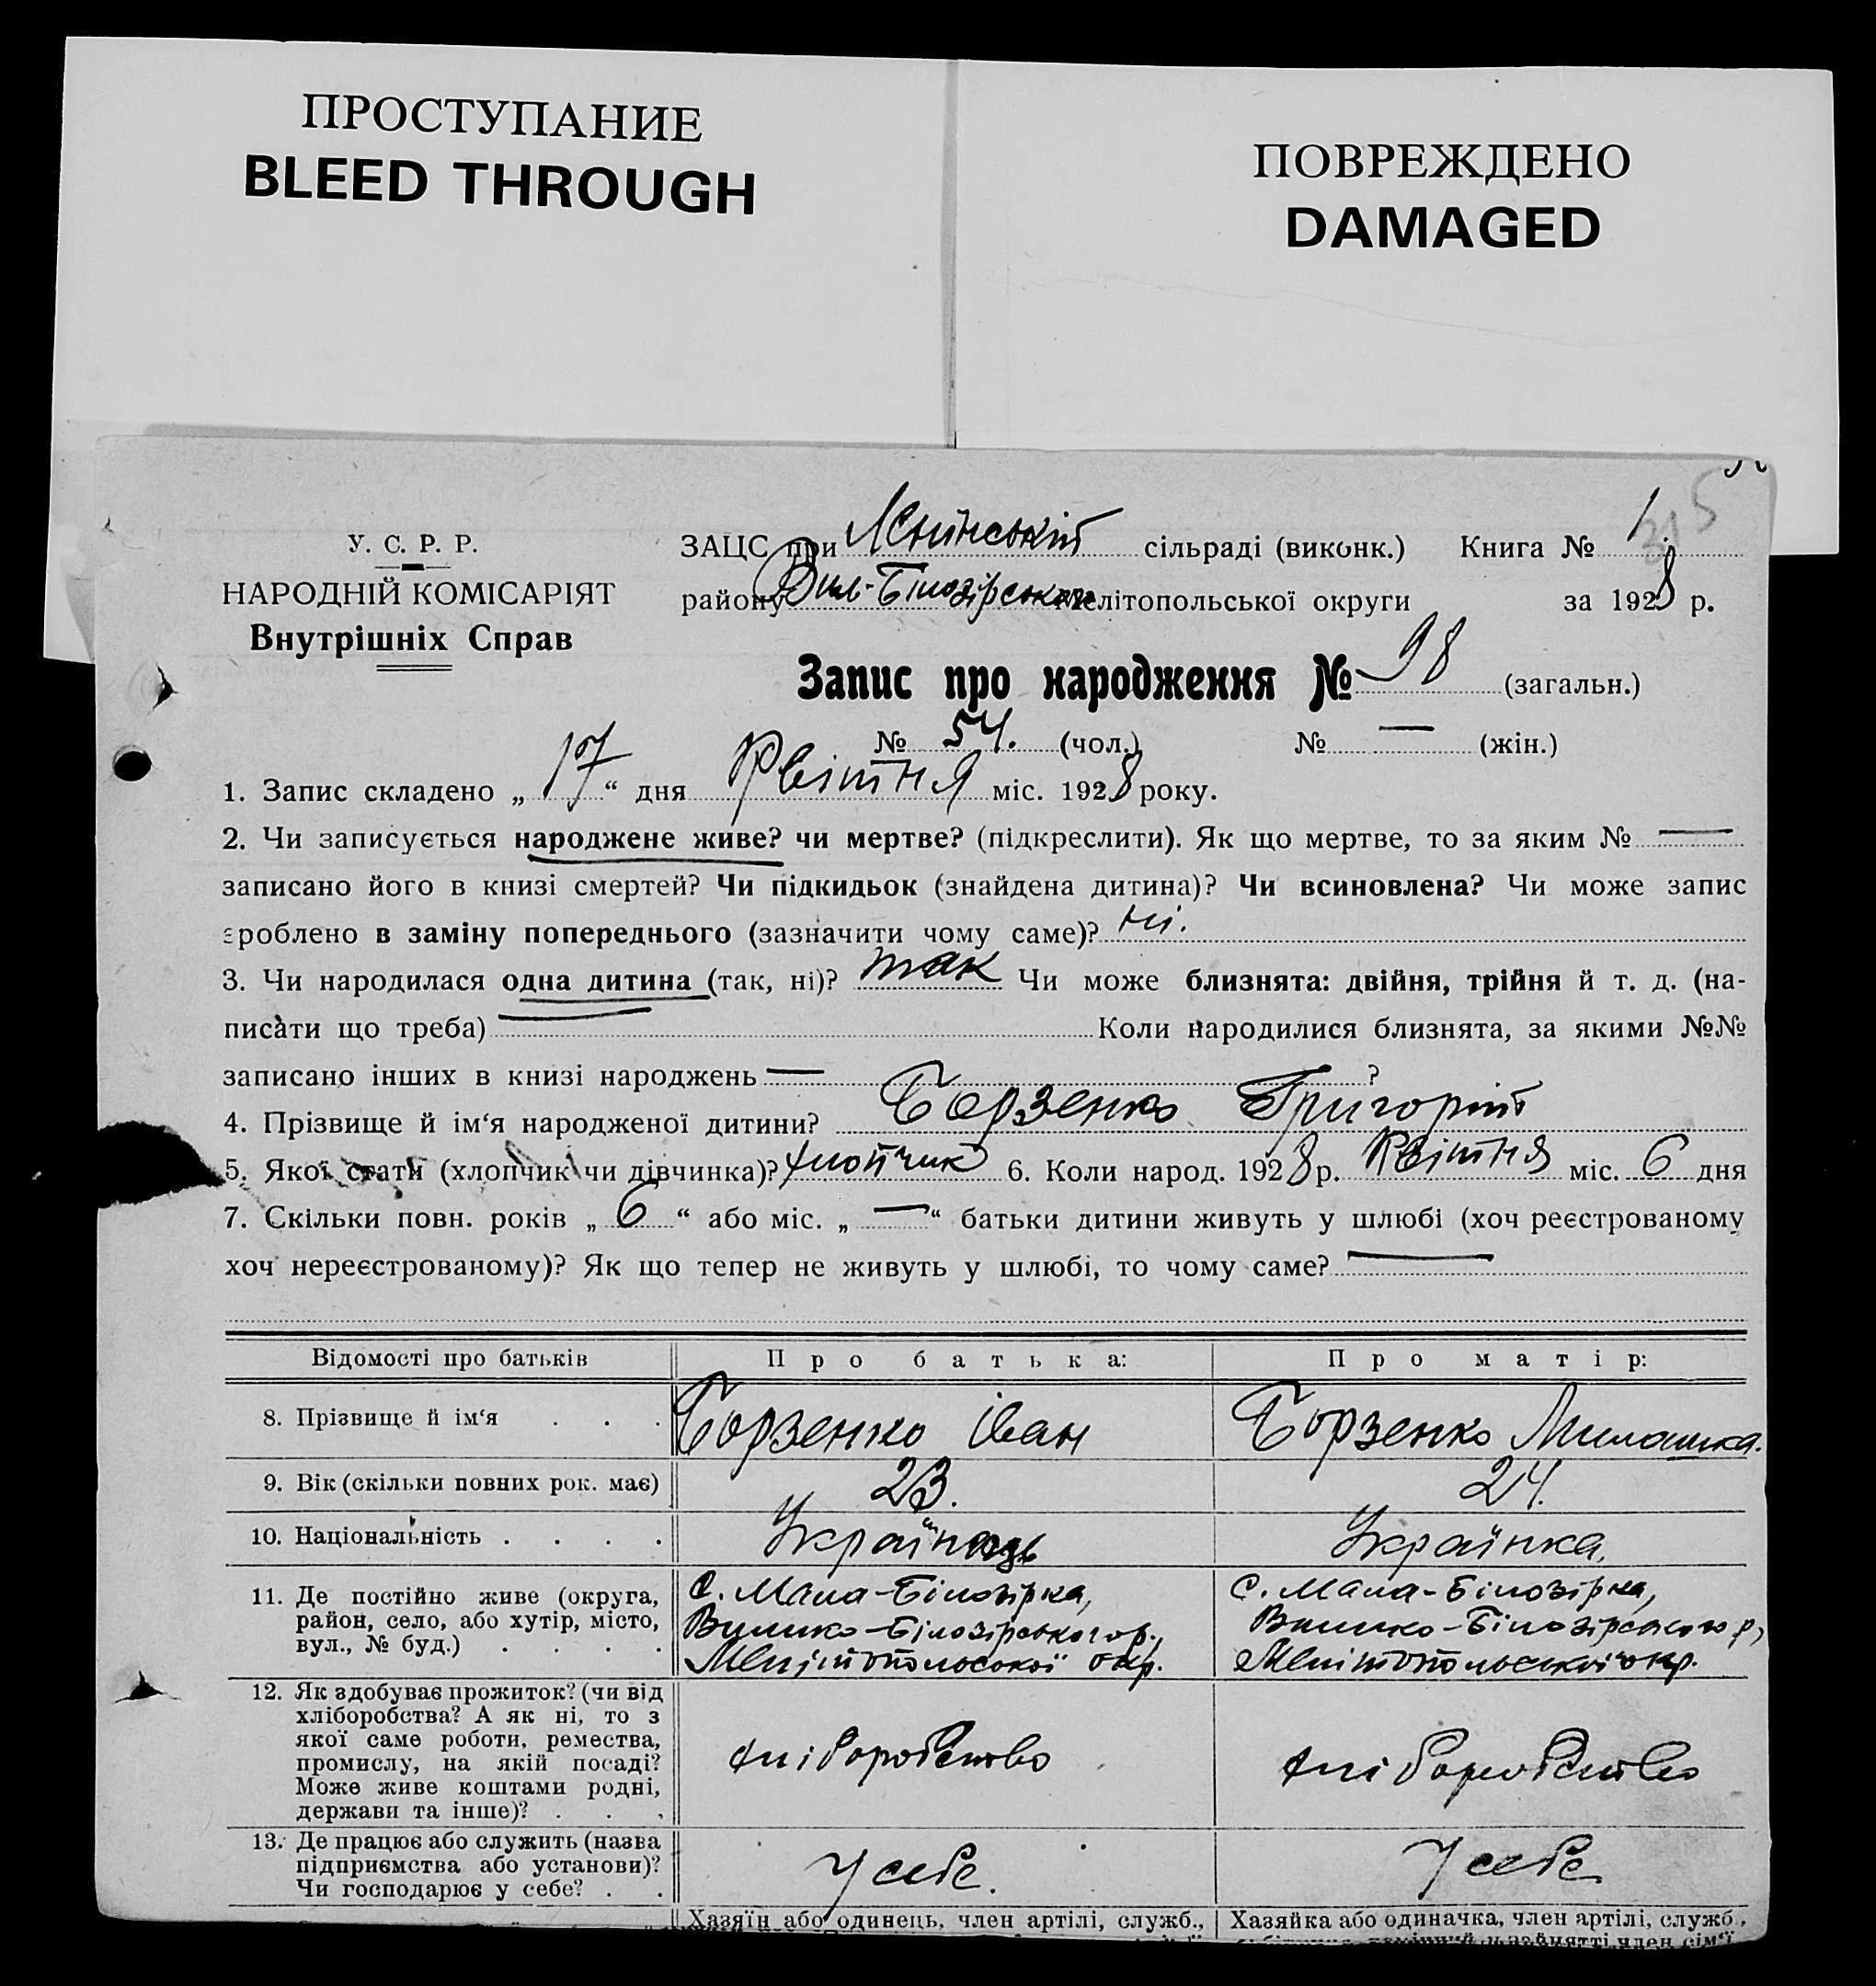 ПРОСТУПАНИЕ
BLEED THROUGH
ПОВРЕЖДЕНО
DAMAGED
315
У. С. Р. Р.
НАРОДНІЙ КОМІСАРІЯТ
Внутрішніх Справ
ЗАЦС при Ленінській сільраді (виконк.) Книга № 1
району Вел-Білозірського Мелітопольської округи за 1928 р.
Запис про народження № 98 (загальн.)
№ 54. (чол.) № — (жін.)
1. Запис складено „17“ дня Квітня міс. 1928 року.
2. Чи записується народжене живе? чи мертве? (підкреслити). Як що мертве, то за яким № —
записано його в книзі смертей? Чи підкидьок (знайдена дитина)? Чи всиновлена? Чи може запис
зроблено в заміну попереднього (зазначити чому саме)? ні.
3. Чи народилася одна дитина (так, ні)? так Чи може близнята: двійня, трійня й т. д. (на-
писати що треба) — Коли народилися близнята, за якими №№
записано інших в книзі народжень — ?
4. Прізвище й ім‘я народженої дитини? Борзенко Григорій
5. Якої статі (хлопчик чи дівчинка)? хлопчик 6. Коли народ. 1928 р. Квітня міс. 6 дня
7. Скільки повн. років „6“ або міс. „—“ батьки дитини живуть у шлюбі (хоч реєстрованому
хоч нереєстрованому)? Як що тепер не живуть у шлюбі, то чому саме? —
Відомості про батьків Про батька: Про матір:
8. Прізвище й ім‘я . . . Борзенко Іван Борзенко Милашка.
9. Вік (скільки повних рок. має) 23. 24.
10. Національність . . . . Українець Українка.
11. Де постійно живе (округа,
район, село, або хутір, місто,
вул., № буд.) . . . .
с. Мала-Білозірка,
Велико-Білозірського р.,
Мелітопольської окр.
с. Мала-Білозірка,
Велико-Білозірського р,
Мелітопольської окр.
12. Як здобуває прожиток? (чи від
хліборобства? А як ні, то з
якої саме роботи, ремества,
промислу, на якій посаді?
Може живе коштами родні,
держави та інше)? . . .
хліборобство
хліборобство
13. Де працює або служить (назва
підприємства або установи)?
Чи господарює у себе? . .
У себе.
У себе
Хазяїн або одинець, член артілі, служб., Хазяйка або одиначка, член артілі, служб.,